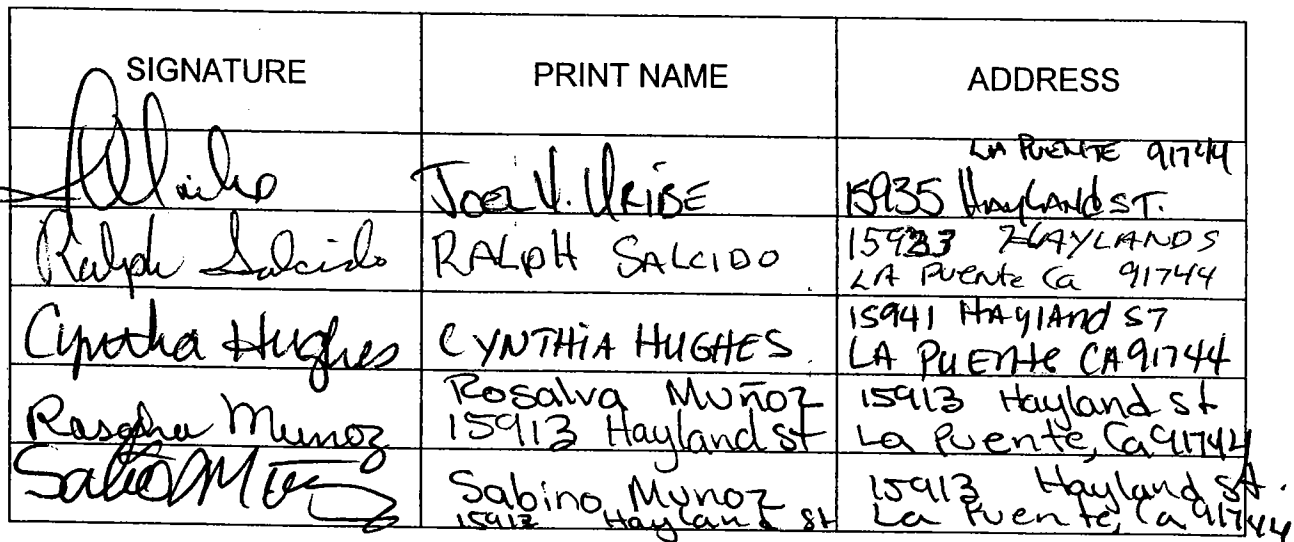 SIGNATURE PRINT NAME ADDRESS
LA PUENTE 91744
Joel V. URIBE 15935 HAYLAND ST.
Ralph Salcido RALPH SALCIDO 15933 HAYLANDS
LA Puente Ca 91744
Cynthia Hughes CYNTHIA HUGHES. 15941 HAYLAnd ST
LA PUENte CA 91744
Rosalva Muñoz 15913 Hayland st
Munoz 15913 Hayland st La Puente, Ca 91744
Sabino Munoz 15913 Hayland st.
15913 Hayland st La Puente, Ca 91744